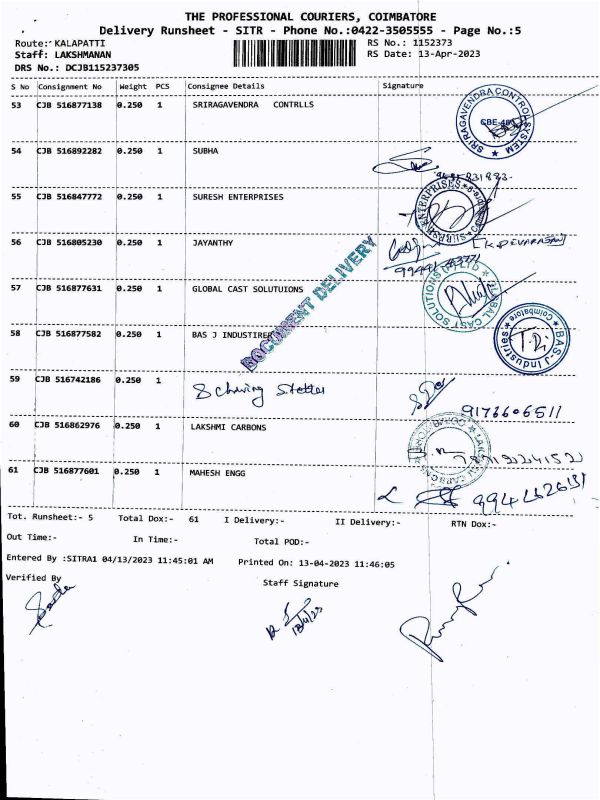 THE PROFESSIONAL COURIERS, COIMBATORE
Delivery Runsheet - SITR - Phone No.:0422-3505555 - Page No.:5
Route: KALAPATTI RS No.: 1152373
Staff: LAKSHMANAN RS Date: 13-Apr-2023
DRS No.: DCJB115237305
S No Consignment No Weight PCS Consignee Details Signature
53 CJB 516877138 0.250 1 SRIRAGAVENDRA CONTRLLS
SRI RAGAVENDRA CONTROL SYSTEM
54 CJB 516892282 0.250 1 SUBHA
55 CJB 516847772 0.250 1 SURESH ENTERPRISES
ENTERPRISES
56 CJB 516805230 0.250 1 JAYANTHY
(K. DEVARASAN)
57 CJB 516877631 0.250 1 GLOBAL CAST SOLUTUIONS
GLOBAL CAST SOLUTIONS (P) LTD
DOCUMENT DELIVERY
58 CJB 516877582 0.250 1 BAS J INDUSTIRE
BAS.J Industries Coimbatore
59 CJB 516742186 0.250 1 Schwing Stetter
9176606511
60 CJB 516862976 0.250 1 LAKSHMI CARBONS
61 CJB 516877601 0.250 1 MAHESH ENGG
Tot. Runsheet:- 5 Total Dox:- 61 I Delivery:- II Delivery:- RTN Dox:-
Out Time:- In Time:- Total POD:-
Entered By :SITRA1 04/13/2023 11:45:01 AM Printed On: 13-04-2023 11:46:05
Verified By Staff Signature
13/4/23